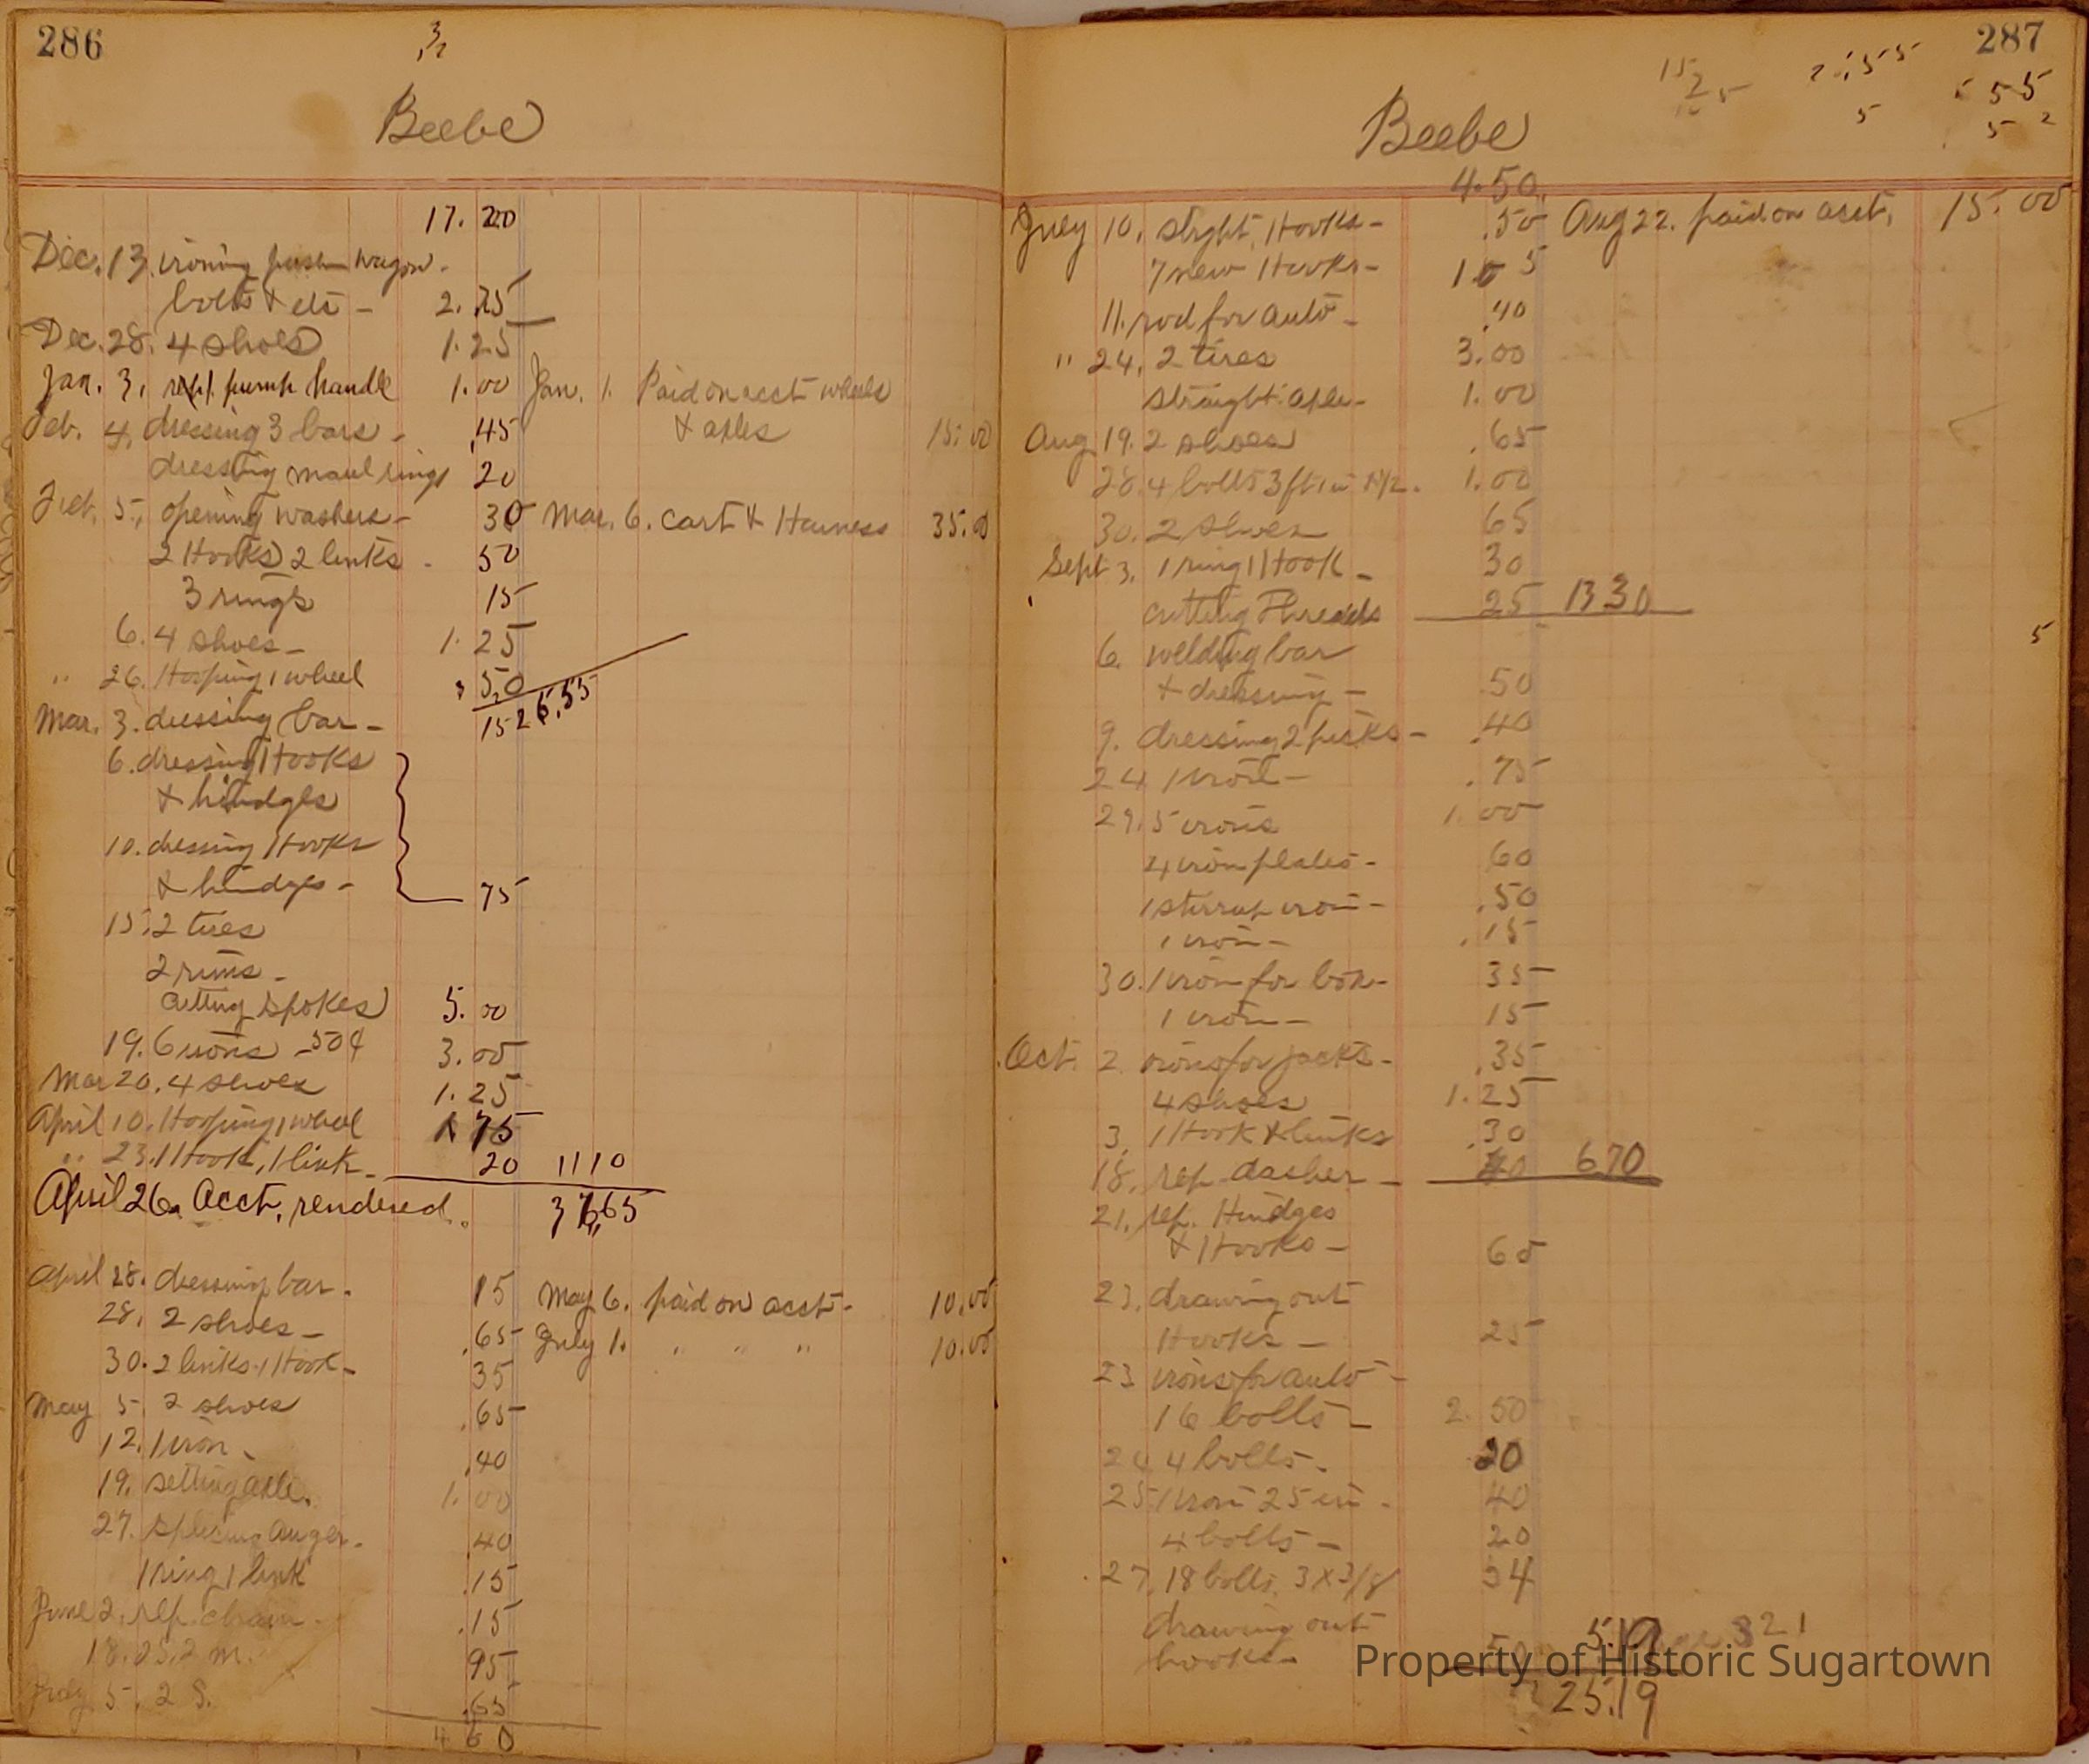 286
Beebe
17. 20
Dec. 13. ironing push wagon.
bolts & etc - 2. 75
Dec. 28. 4 shoes 1. 25
Jan. 3. rep. pump handle 1. 00 Jan. 1. Paid on acct wheels
Feb. 4. dressing 3 bars - .45 & axles 15. 00
dressing maul rings 20
Feb. 5. opening washers - 30 Mar. 6. Cart & Harness 35.00
2 Hooks 2 links - 50
3 rings 15
6. 4 shoes - 1. 25
" 26. Hooping 1 wheel 50
Mar. 3. dressing bar - 15 26.55
6. dressing Hooks
& hindges
10. dressing Hooks
& hindges - 75
15. 2 tires
2 rims -
Cutting spokes 5. 00
19. 6 irons - 50¢ 3. 00
Mar 20. 4 shoes 1. 25
April 10. Hooping 1 wheel 75
" 23. 1 Hook, 1 link - 20 11 10
April 26. Acct. rendered. 65
April 28. dressing bar. 15 May 6. paid on acct - 10.00
28. 2 shoes - .65 July 1. " " " 10.00
30. 2 links 1 Hook - 35
May 5. 2 shoes .65
12. 1 iron - .40
19. setting axle. 1. 00
27. auger. .40
1 ring 1 link .15
June 2. rep. chain - .15
18. 2 S. 2 m. 95
July 5. 2 S. .65
287
Beebe
4.50
July 10. stright. Hooks - .50 Aug 22. paid on acct. 15. 00
7 new Hooks - 1 05
11. rod for auto - .40
" 24. 2 tires 3.00
straight. axle - 1. 00
Aug 19. 2 shoes .65
28. 4 bolts 3 ft 1. 00
30. 2 shoes 65
Sept 3. 1 ring 1 Hook - 30
cutting Threads 25 13 30
6. welding bar
& dressing - 50
9. dressing 2 picks - .40
24 1 iron - .75
29. 5 irons 1. 00
4 iron plates - 60
1 stirrup iron - .50
1 iron - .15
30. 1 iron for box - 35
1 iron - 15
Oct. 2. irons for jacks - .35
4 shoes 1. 25
3. 1 Hook & links .30
18. rep. dasher - 40 6.70
21. rep. Hindges
& Hooks - 60
23. drawing out
Hooks - 25
23 irons for auto -
16 bolts - 2. 50
24 4 bolts - 20
25 1 iron 25 in - 40
4 bolts - 20
27. 18 bolts. 3 X 3/8 54
drawing out
hooks - 50 5.19 321
25.19
Property of Historic Sugartown